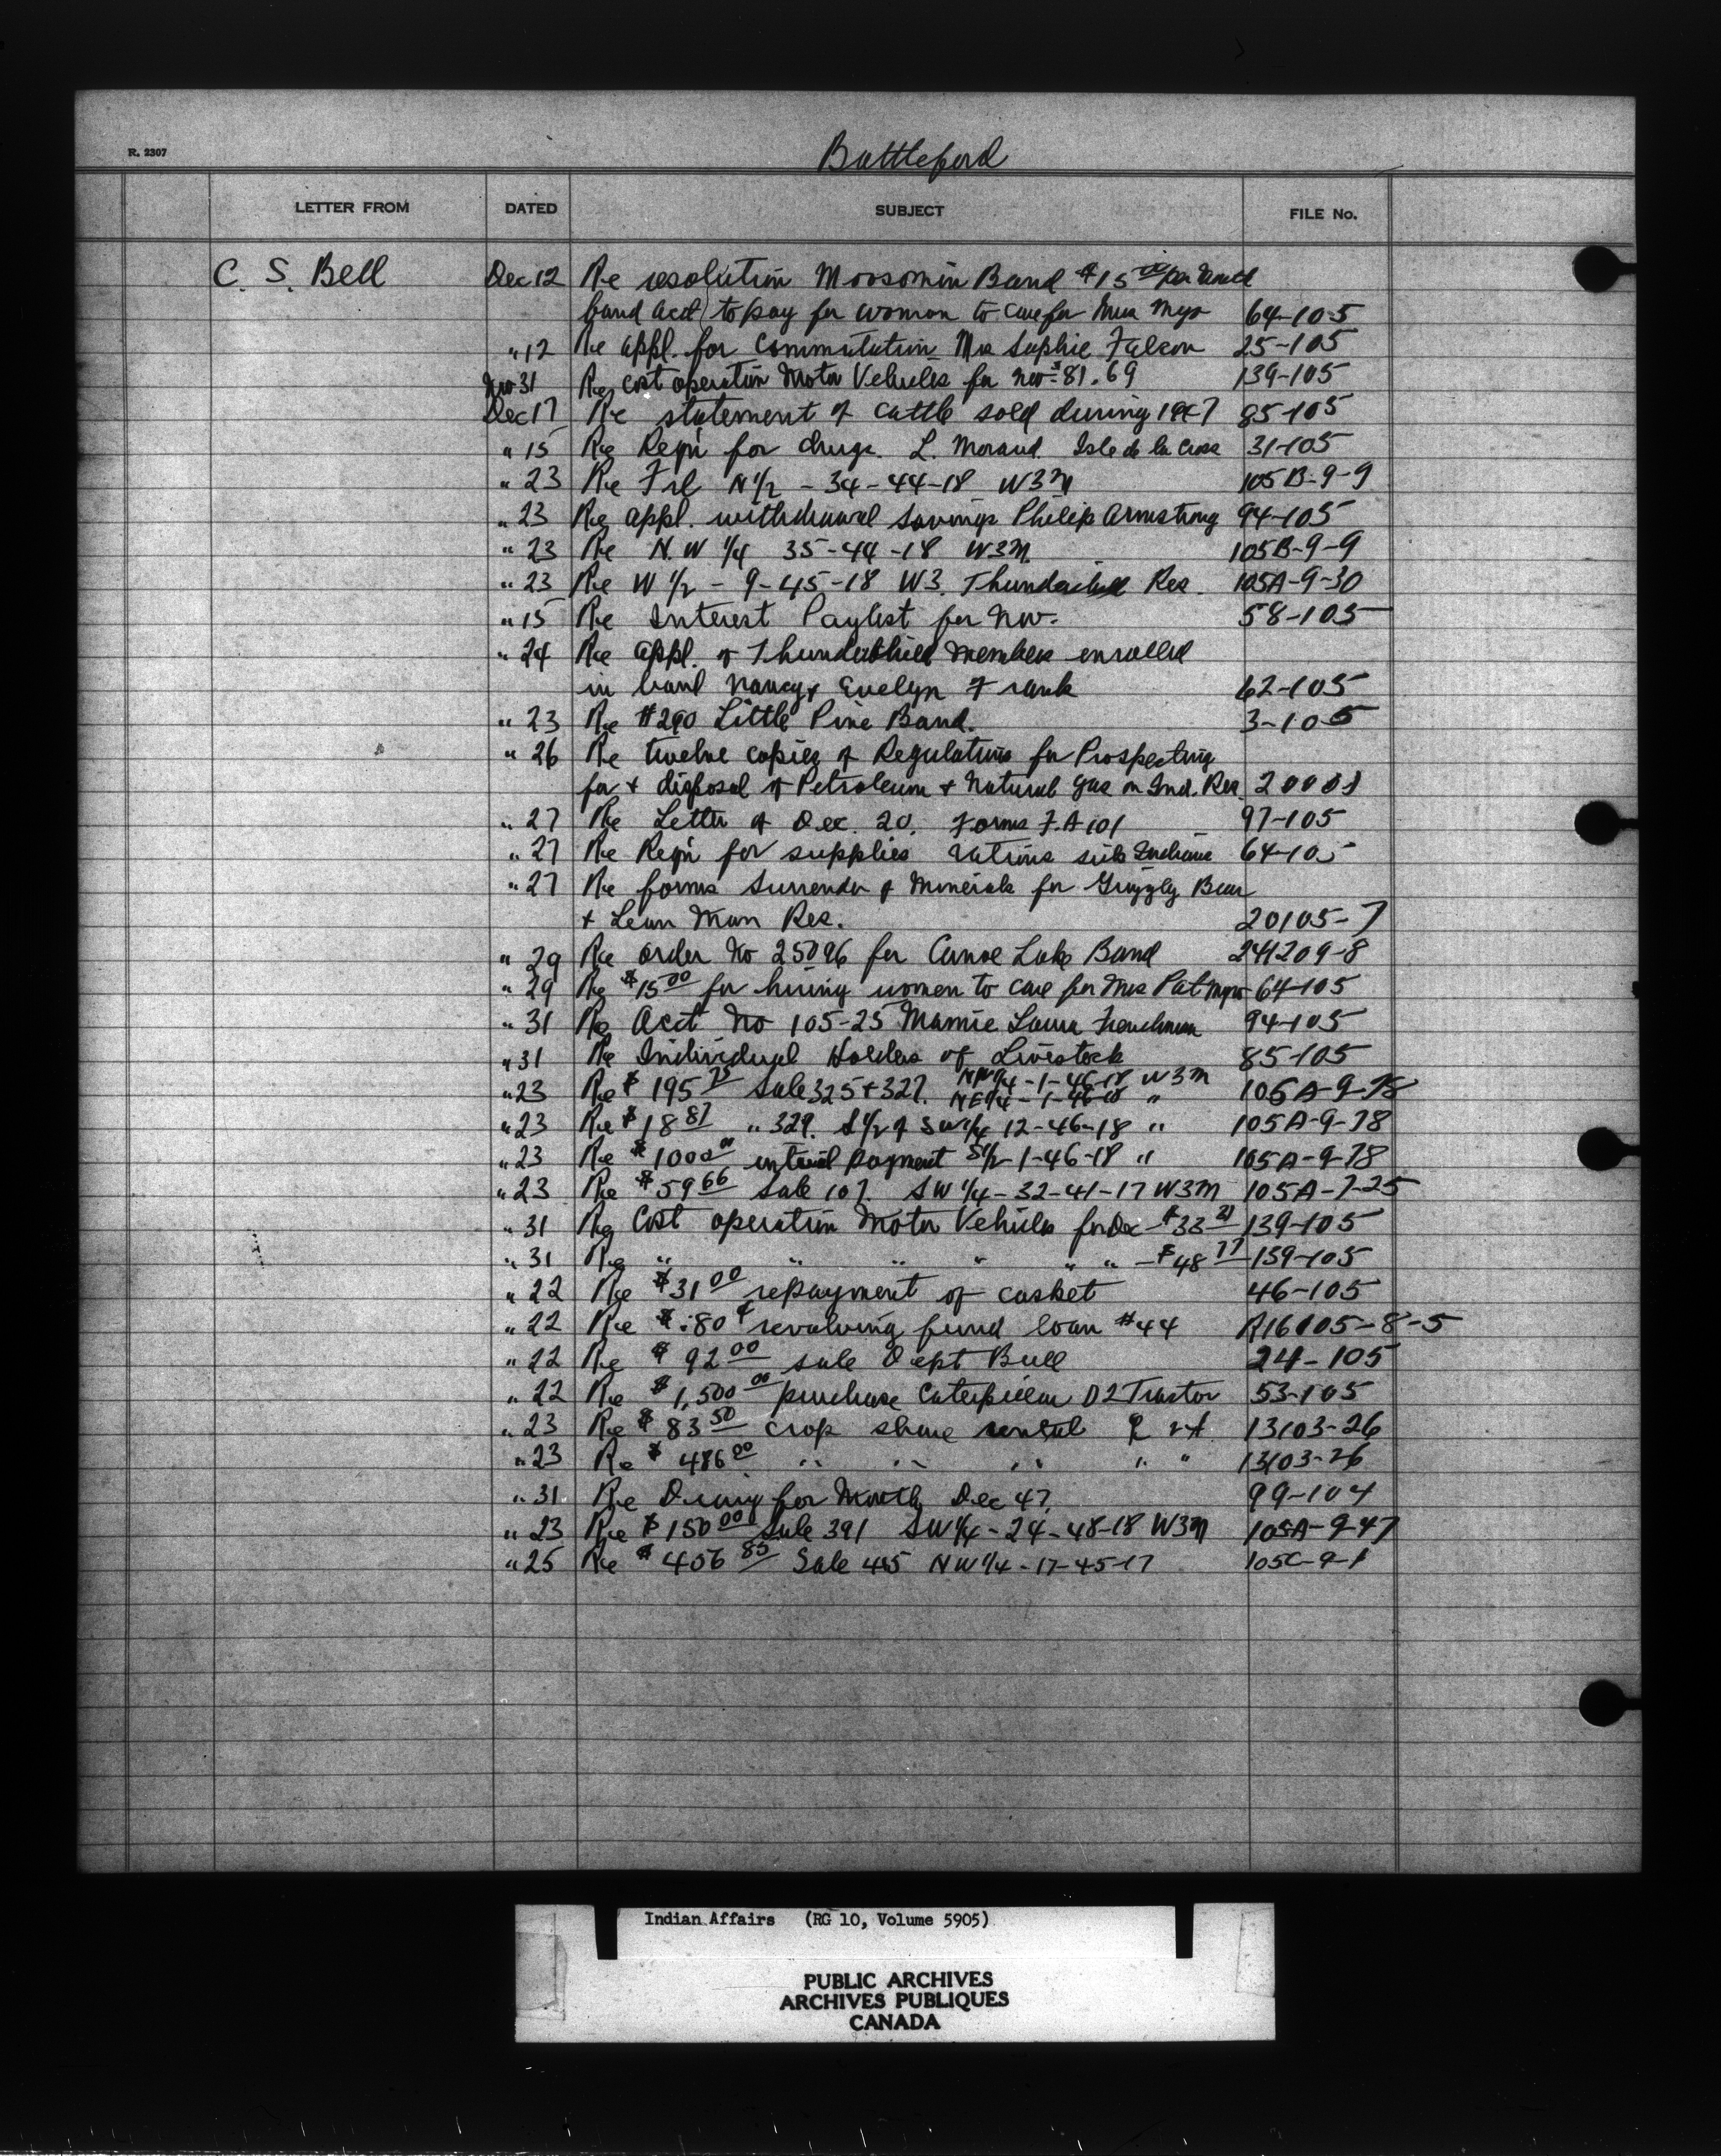 R. 2307
Battleford
LETTER FROM DATED SUBJECT FILE No.
C. S. Bell Dec 12 Re resolution Moosomin Band $15.00 per month
band acct) to pay for woman to care for Mrs 64-105
" 12 Re appl. for Commutation Mrs Sophie Falcon 25-105
Nov 31 Re cost operation Motor Vehicles for Nov $81.69 139-105
Dec 17 Re statement of cattle sold during 1947 85-105
" 15 Re Reqn for drugs. L. Moraud Isle de la Cross 31-105
" 23 Re Frl N½ - 34-44-18 W3M 105B-9-9
" 23 Re appl. withdrawal savings Philip Armstrong 94-105
" 23 Re N.W ¼ 35-44-18 W3M. 105B-9-9
" 23 Re W ½ - 9-45-18 W3. Thunderchild Res. 105A-9-30
" 15 Re Interest Paylist for Nov. 58-105
" 24 Re appl. of Thunderchild members enrolled
in band Nancy & Evelyn Frank 62-105
" 23 Re #290 Little Pine Band. 3-105
" 26 Re twelve copies of Regulations for Prospecting
for & disposal of Petroleum & Natural Gas on Ind. Res.
" 27 Re Letter of Dec. 20. Forms F.A 101 97-105
" 27 Re Reqn for supplies rations sick Indians 64-105
" 27 Re forms Surrender of Minerals for Grizzly Bear
& Lean Man Res. 20105-7
" 29 Re order No 25096 for Canoe Lake Band 241209-8
" 29 Re $15.00 for hiring women to care for Mrs Pat 64-105
" 31 Re Acct No 105-25 Mamie Laura Frenchman 94-105
" 31 Re Individual Holders of Livestock 85-105
" 23 Re $195.75 Sale 325 & 327. NW¼-1-46-18 W3M 105A-9-78
NE¼-1-46-18 "
" 23 Re $18.87 " 329. S½ of SW¼ 12-46-18 " 105A-9-78
" 23 Re $1000.00 initial payment S½-1-46-18 " 105A-9-78
" 23 Re $59.66 Sale 107. SW ¼-32-41-17 W3M 105A-7-25
" 31 Re Cost operation Motor Vehicles for Dec - $33.21 139-105
" 31 Re " " " " " " - $48.77 139-105
" 22 Re $31.00 repayment of casket 46-105
" 22 Re $.80¢ revolving fund loan #44 R16105-8-5
" 22 Re $92.00 sale Dept Bull 24-105
" 22 Re $1,500.00 purchase Caterpillar D2 Tractor 53-105
" 23 Re $83.50 crop share rental 13103-26
" 23 Re $486.00 " " " " " 13103-26
" 31 Re Diary for Month Dec 47. 99-104
" 23 Re $150.00 Sale 391 SW¼-24-48-18 W3M 105A-9-47
" 25 Re $406.85 Sale 485 NW¼-17-45-17 105C-9-1
Indian Affairs (RG 10, Volume 5905)
PUBLIC ARCHIVES
ARCHIVES PUBLIQUES
CANADA